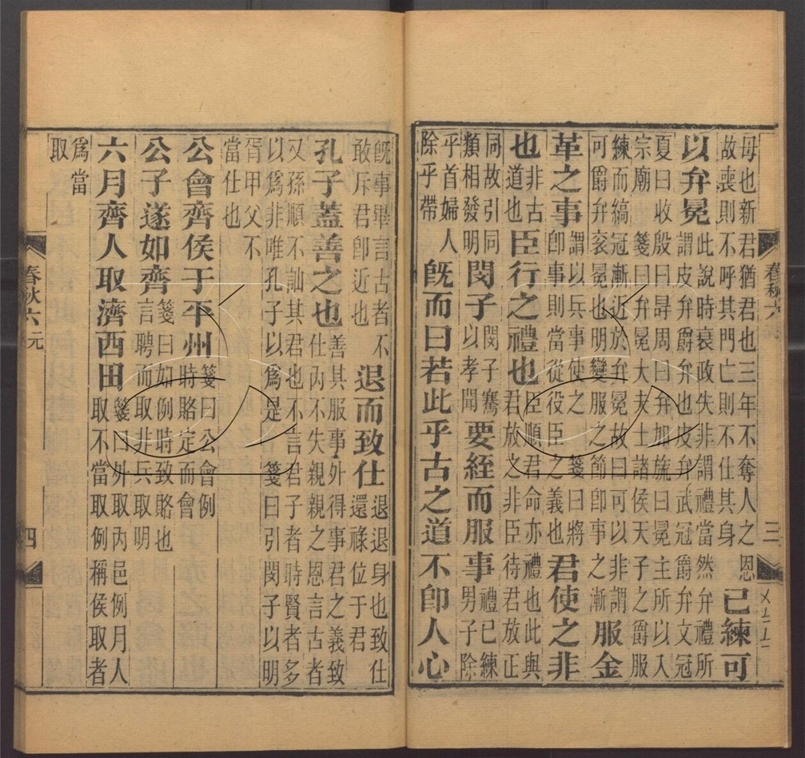 毋也新君猶君也三年不奪人之恩
故喪則不呼其門亡則不仕其身
已練可
以弁冕
此說時衰政失非謂禮當然弁禮所
謂皮弁爵弁也皮弁武冠爵弁文冠
夏曰收殷曰冔周曰弁加旒曰冕主所以入
宗廟 箋曰弁冕大夫士諸侯天子之爵服
練而縞冠漸近於弁冕故曰可以非謂
可爵弁衮冕也明變服之節卽事之漸
服金
革之事
謂以兵事使之 箋曰將
卽事則當從役臣之義也
君使之非
也
非古
道也
臣行之禮也
臣順君命亦禮也此與
君放之非臣待君放正
同故引同
類相發明
閔子
閔子騫
以孝聞
要絰而服事
禮已練
男子除
乎首婦人
除乎帶
旣而曰若此乎古之道不卽人心
春秋六
三
旣事畢言古者不
敢斥君卽近也
退而致仕
退退身也致仕
還祿位于君
孔子蓋善之也
善其服事外得事君之義致
仕丙不失親親之恩言古者
又孫順不訕其君也不言君子者時賢者多
以爲非唯孔子以爲是 箋曰引閔子以明
胥甲父不
當仕也
公會齊侯于平州
箋曰公會例
時賂定而會
公子遂如齊
箋曰如例時致賂也
言聘而取非兵取明
六月齊人取濟西田
箋曰外取內邑例月人
取不當取例稱侯取者
爲當
取
春秋六 元
四